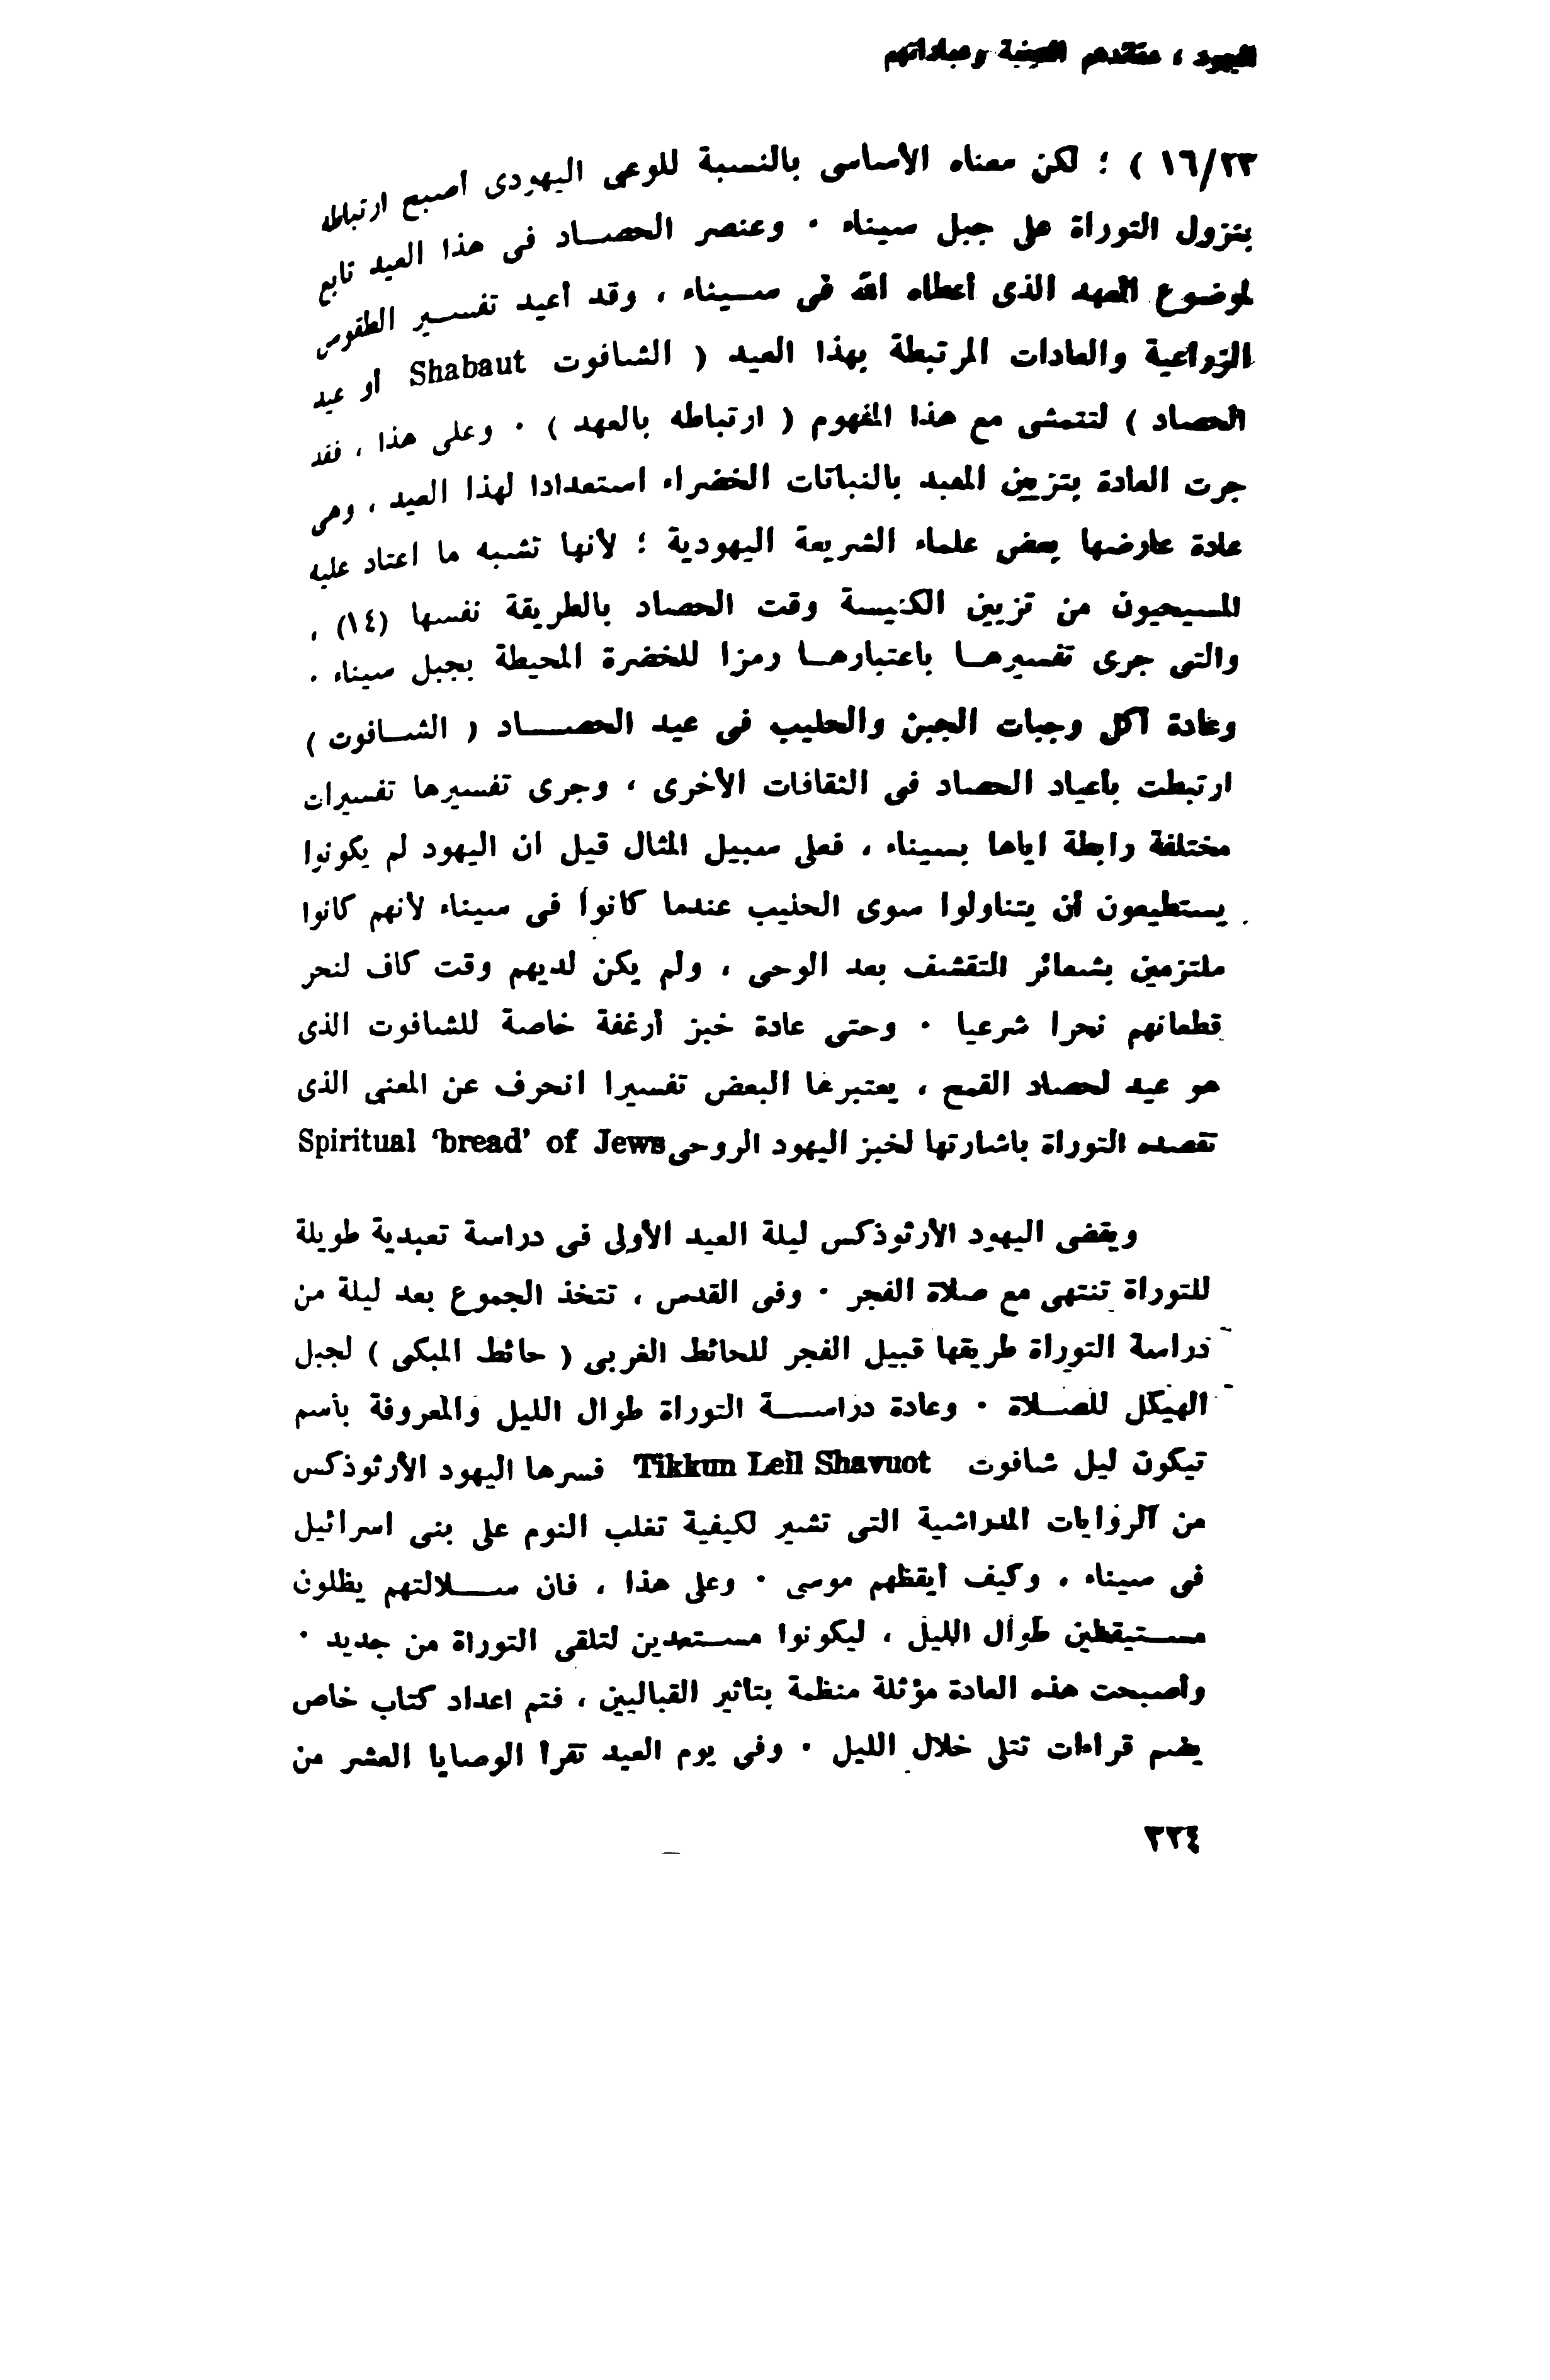 اليهود ، عقائدهم الدينية وعباداتهم
١٦/٢٣ ) ؛ لكن معناه الأساسى بالنسبة للوعى اليهودى أصبح ارتباطه
بنزول التوراة على جبل سيناء . وعنصر الحصاد فى هذا العيد تابع
لموضوع العهد الذى أعطاه الله فى سيناء ، وقد أعيد تفسير الطقوس
الزراعية والعادات المرتبطة بهذا العيد ( الشافوت Shabaut أو عيد
الحصاد ) لتتمشى مع هذا المفهوم ( ارتباطه بالعهد ) . وعلى هذا ، فقد
جرت العادة بتزيين المعبد بالنباتات الخضراء استعدادا لهذا العيد ، وهى
عادة عارضها بعض علماء الشريعة اليهودية ؛ لأنها تشبه ما اعتاد عليه
المسيحيون من تزيين الكنيسة وقت الحصاد بالطريقة نفسها (١٤) ،
والتى جرى تفسيرها باعتبارها رمزا للخضرة المحيطة بجبل سيناء .
وعادة أكل وجبات الجبن والحليب فى عيد الحصاد ( الشافوت )
ارتبطت بأعياد الحصاد فى الثقافات الأخرى ، وجرى تفسيرها تفسيرات
مختلفة رابطة اياها بسيناء ، فعلى سبيل المثال قيل ان اليهود لم يكونوا
يستطيعون أن يتناولوا سوى الحليب عندما كانوا فى سيناء لأنهم كانوا
ملتزمين بشعائر التقشف بعد الوحى ، ولم يكن لديهم وقت كاف لنحر
قطعانهم نحرا شرعيا . وحتى عادة خبز أرغفة خاصة للشافوت الذى
هو عيد لحصاد القمح ، يعتبرها البعض تفسيرا انحرف عن المعنى الذى
تقصده التوراة باشارتها لخبز اليهود الروحى Spiritual 'bread' of Jews
ويقضى اليهود الأرثوذكس ليلة العيد الأولى فى دراسة تعبدية طويلة
للتوراة تنتهى مع صلاة الفجر . وفى القدس ، تتخذ الجموع بعد ليلة من
دراسة التوراة طريقها قبيل الفجر للحائط الغربى ( حائط المبكى ) لجبل
الهيكل للصلاة . وعادة دراسة التوراة طوال الليل والمعروفة بأسم
تيكون ليل شافوت Tikkun Leil Shavuot فسرها اليهود الأرثوذكس
من الروايات المدراشية التى تشير لكيفية تغلب النوم على بنى اسرائيل
فى سيناء ، وكيف أيقظهم موسى . وعلى هذا ، فان سلالتهم يظلون
مستيقظين طوال الليل ، ليكونوا مستعدين لتلقى التوراة من جديد .
وأصبحت هذه العادة مؤثلة منظمة بتأثير القباليين ، فتم اعداد كتاب خاص
يضم قراءات تتلى خلال الليل . وفى يوم العيد تقرأ الوصايا العشر من
٢٢٤